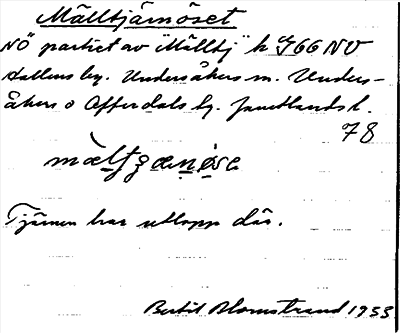 Mälltjärnöset
NÖ partiet av "Mälltj" k 966 NV
Hallens sn. Undersåkers m. Unders-
åkers o Offerdals tg. Jämtlands l.
78
Tjärnen har utlopp där.
Bertil Blomstrand 1935